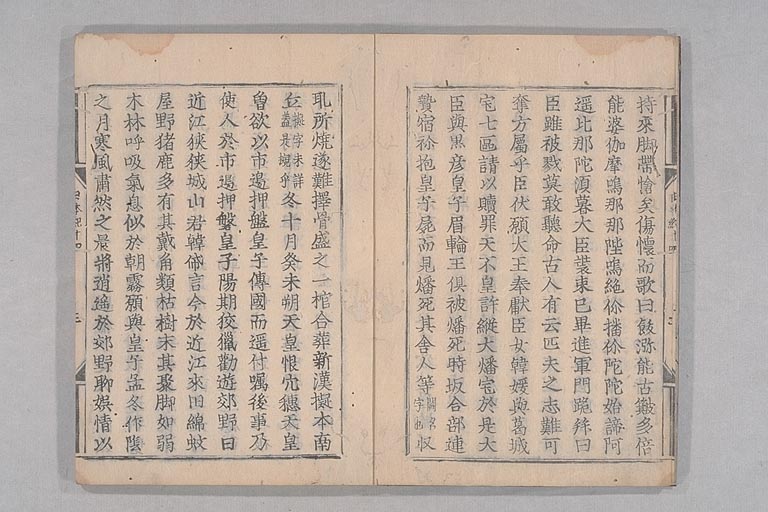 持來脚帶愴矣傷懷而歌曰飫瀰能古簸多倍
能婆伽摩嗚那那陛嗚絁你播你陀陀始諦阿
遥比那陀須暮大臣裝束已畢進軍門跪拜曰
臣雖被戮莫敢聽命古人有云匹夫之志難可
奪方屬乎臣伏願大王奉獻臣女韓媛與葛城
宅七區請以贖罪天不皇許縱火燔宅於是大
臣與黒彦皇子眉輪王倶被燔死時坂合部連
贄宿祢抱皇子屍而見燔死其舍人等闕名字也収
取所燒遂難擇骨盛之一棺合葬新漢擬本南
丘擬字未詳蓋是槻乎冬十月癸未朔天皇恨穴穗天皇
曾欲以市邊押盤皇子傳國而遥付囑後事乃
使人於市邊押盤皇子陽期狡獵勸遊郊野曰
近江狹狹城山君韓帒言今於近江來田綿蚊
屋野猪鹿多有其戴角類枯樹末其聚脚如弱
木林呼吸氣息似於朝霧願與皇子孟冬作陰
之月寒風肅然之晨將逍遥於郊野聊娯情以
日本紀十四
三